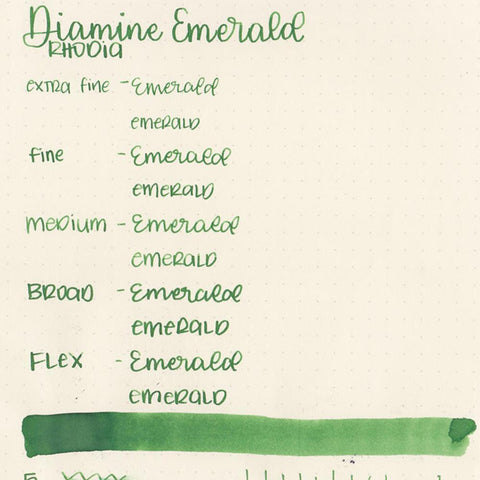 Diamine Emerald
RHODIA
extra fine - Emerald
emerald
fine - Emerald
emerald
medium - Emerald
emerald
BROAD - Emerald
emerald
FLEX - Emerald
emerald